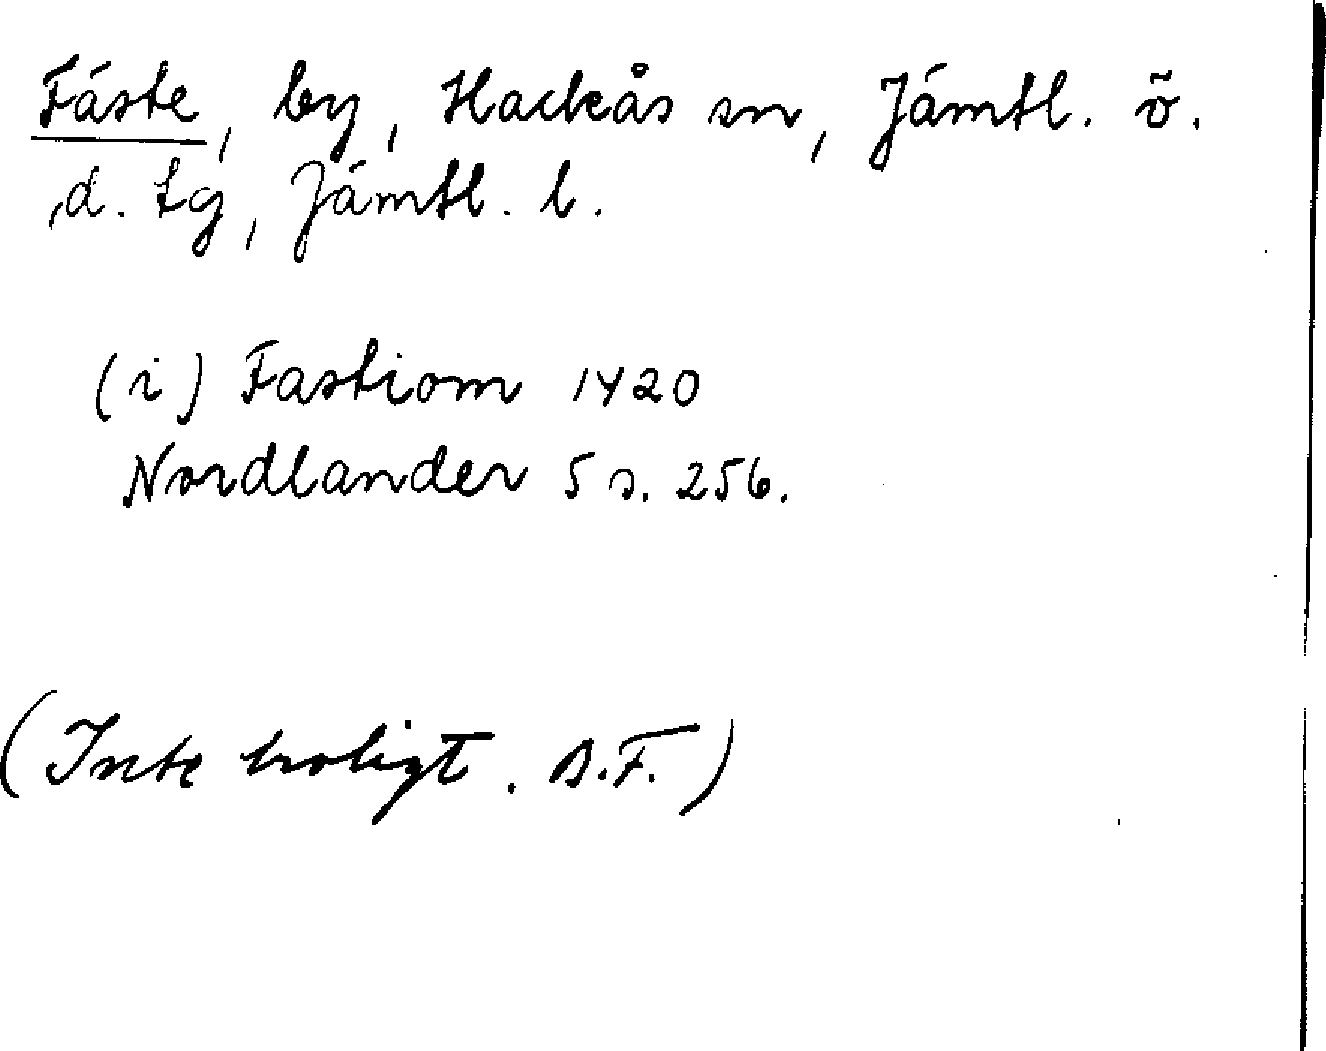 Fäste, by, Hackås sn, Jämtl. ö.
d. tg, Jämtl. l.
(i) Fastiom 1420
Nordlander 5 s. 256.
(Inte troligt. A.F.)